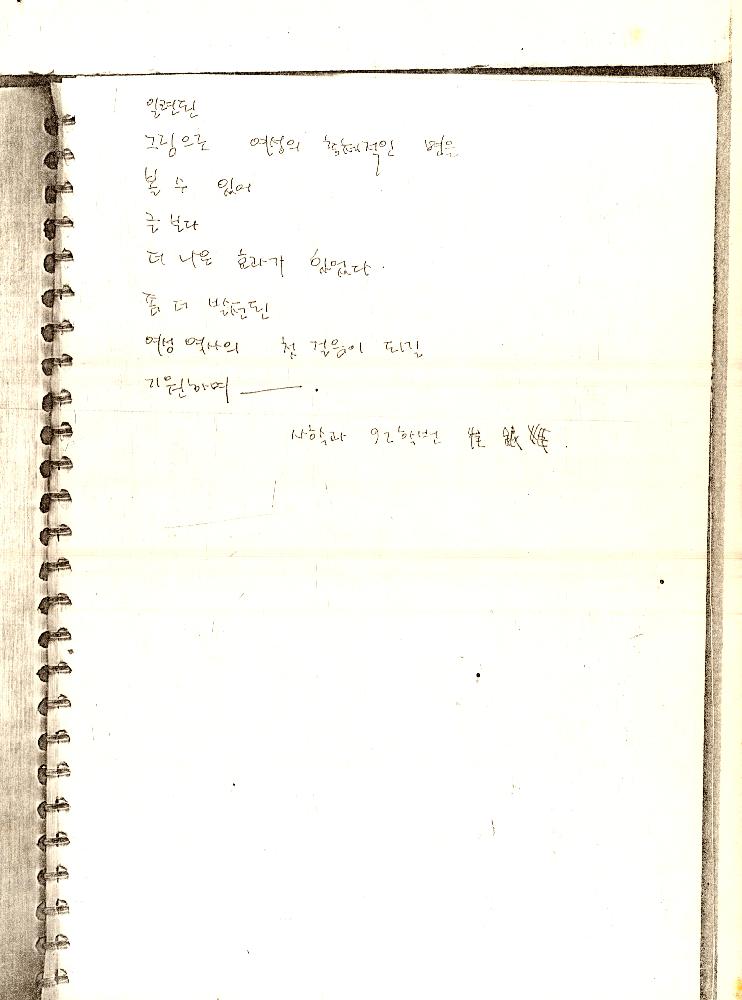 일련된
그림으로 여성의 학회적인 면을
볼 수 있어
글 보다
더 나은 효과가 있었다.
좀 더 발전된
여성 역사의 첫 걸음이 되길
기원하며 ———.
사학과 92학번 崔 銀